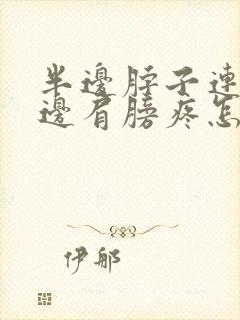 半邊脖子連
邊肩膀疼怎
伊那